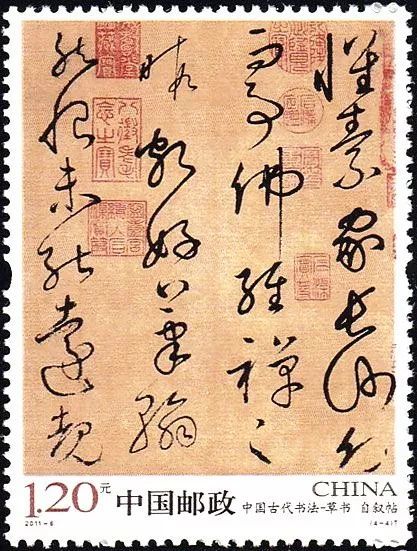 懷素家長沙幼
而事佛經禪之
暇頗好筆翰
然恨未能遠覩
八徵耄念之寶
CHINA
1.20元 中国邮政 中国古代书法-草书 自叙帖
2011-6 (4-4)T